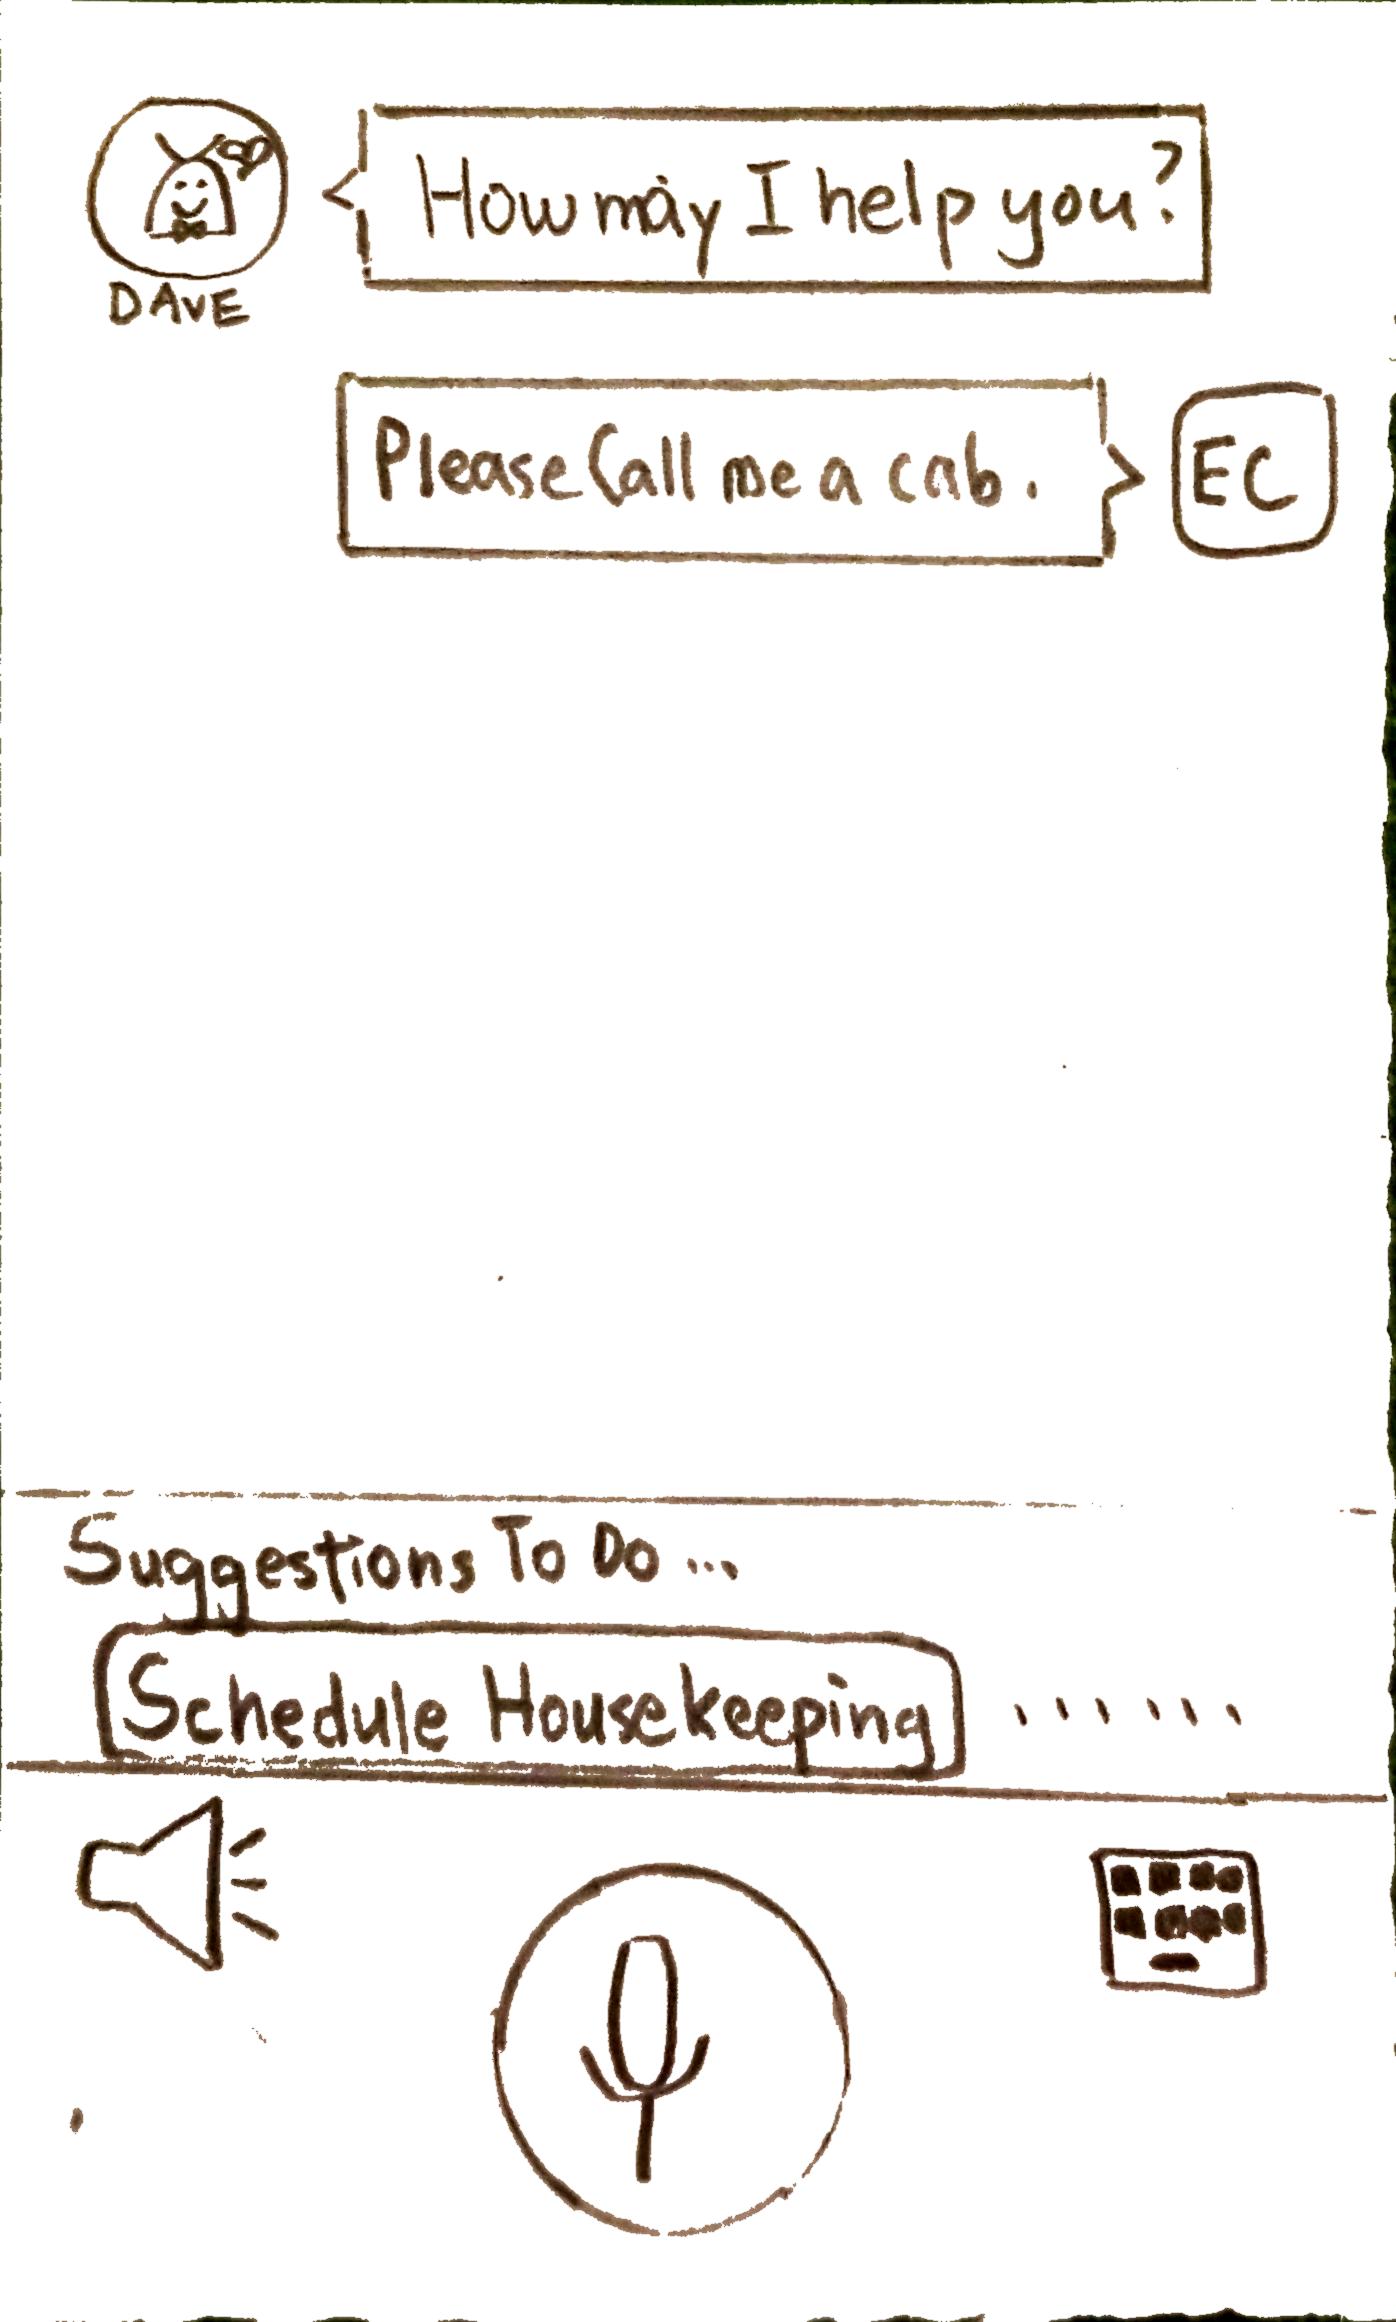 How may I help you?
DAVE
Please Call me a cab.
EC
Suggestions To Do ...
Schedule Housekeeping ......